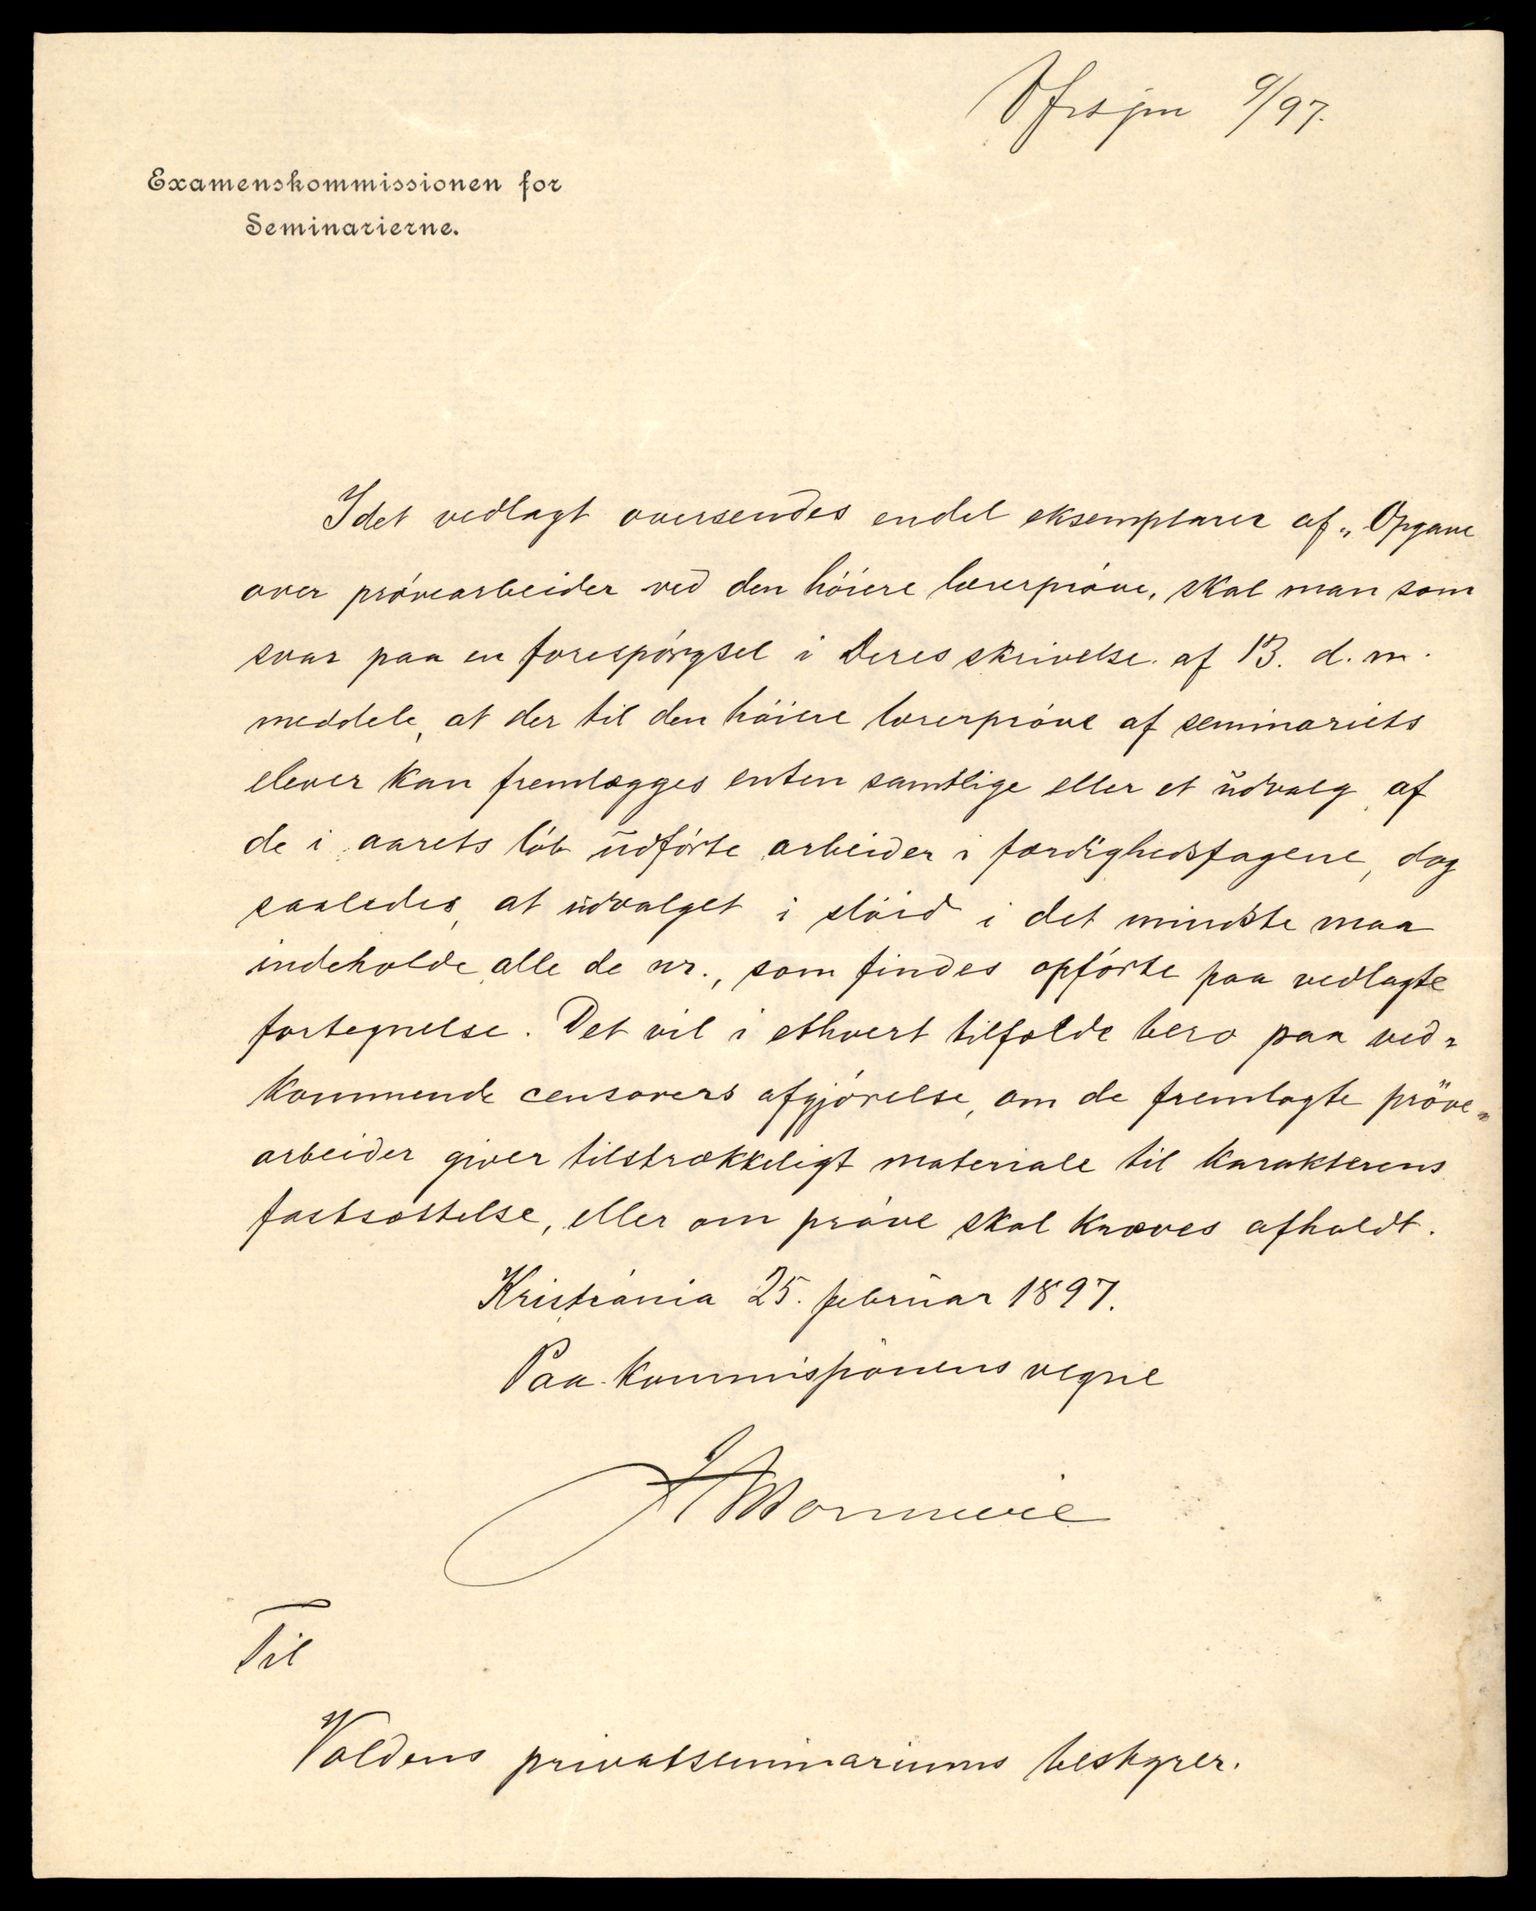 9/97.
Examenskommissionen for
Seminarierne.
Idet vedlagt oversendes endel eksemplarer af „Opgave
over prøvearbeider ved den høiere lærerprøve, skal man som
svar paa en forespørgsel i Deres skrivelse af 13. d. m.
meddele, at der til den høiere lærerprøve af seminariets
elever kan fremlægges enten samtlige eller et udvalg af
de i aarets løb udførte arbeider i færdighedsfagene, dog
saaledes, at udvalget i sløid i det mindste maa
indeholde alle de nr., som findes opførte paa vedlagte
fortegnelse. Det vil i ethvert tilfælde bero paa ved-
kommende censorers afgjørelse, om de fremlagte prøve-
arbeider giver tilstrækkeligt materiale til karakterens
fastsættelse, eller om prøve skal kræves afholdt.
Kristiania 25. februar 1897.
Paa kommissionens vegne
Til
Voldens privatseminariums bestyrer.